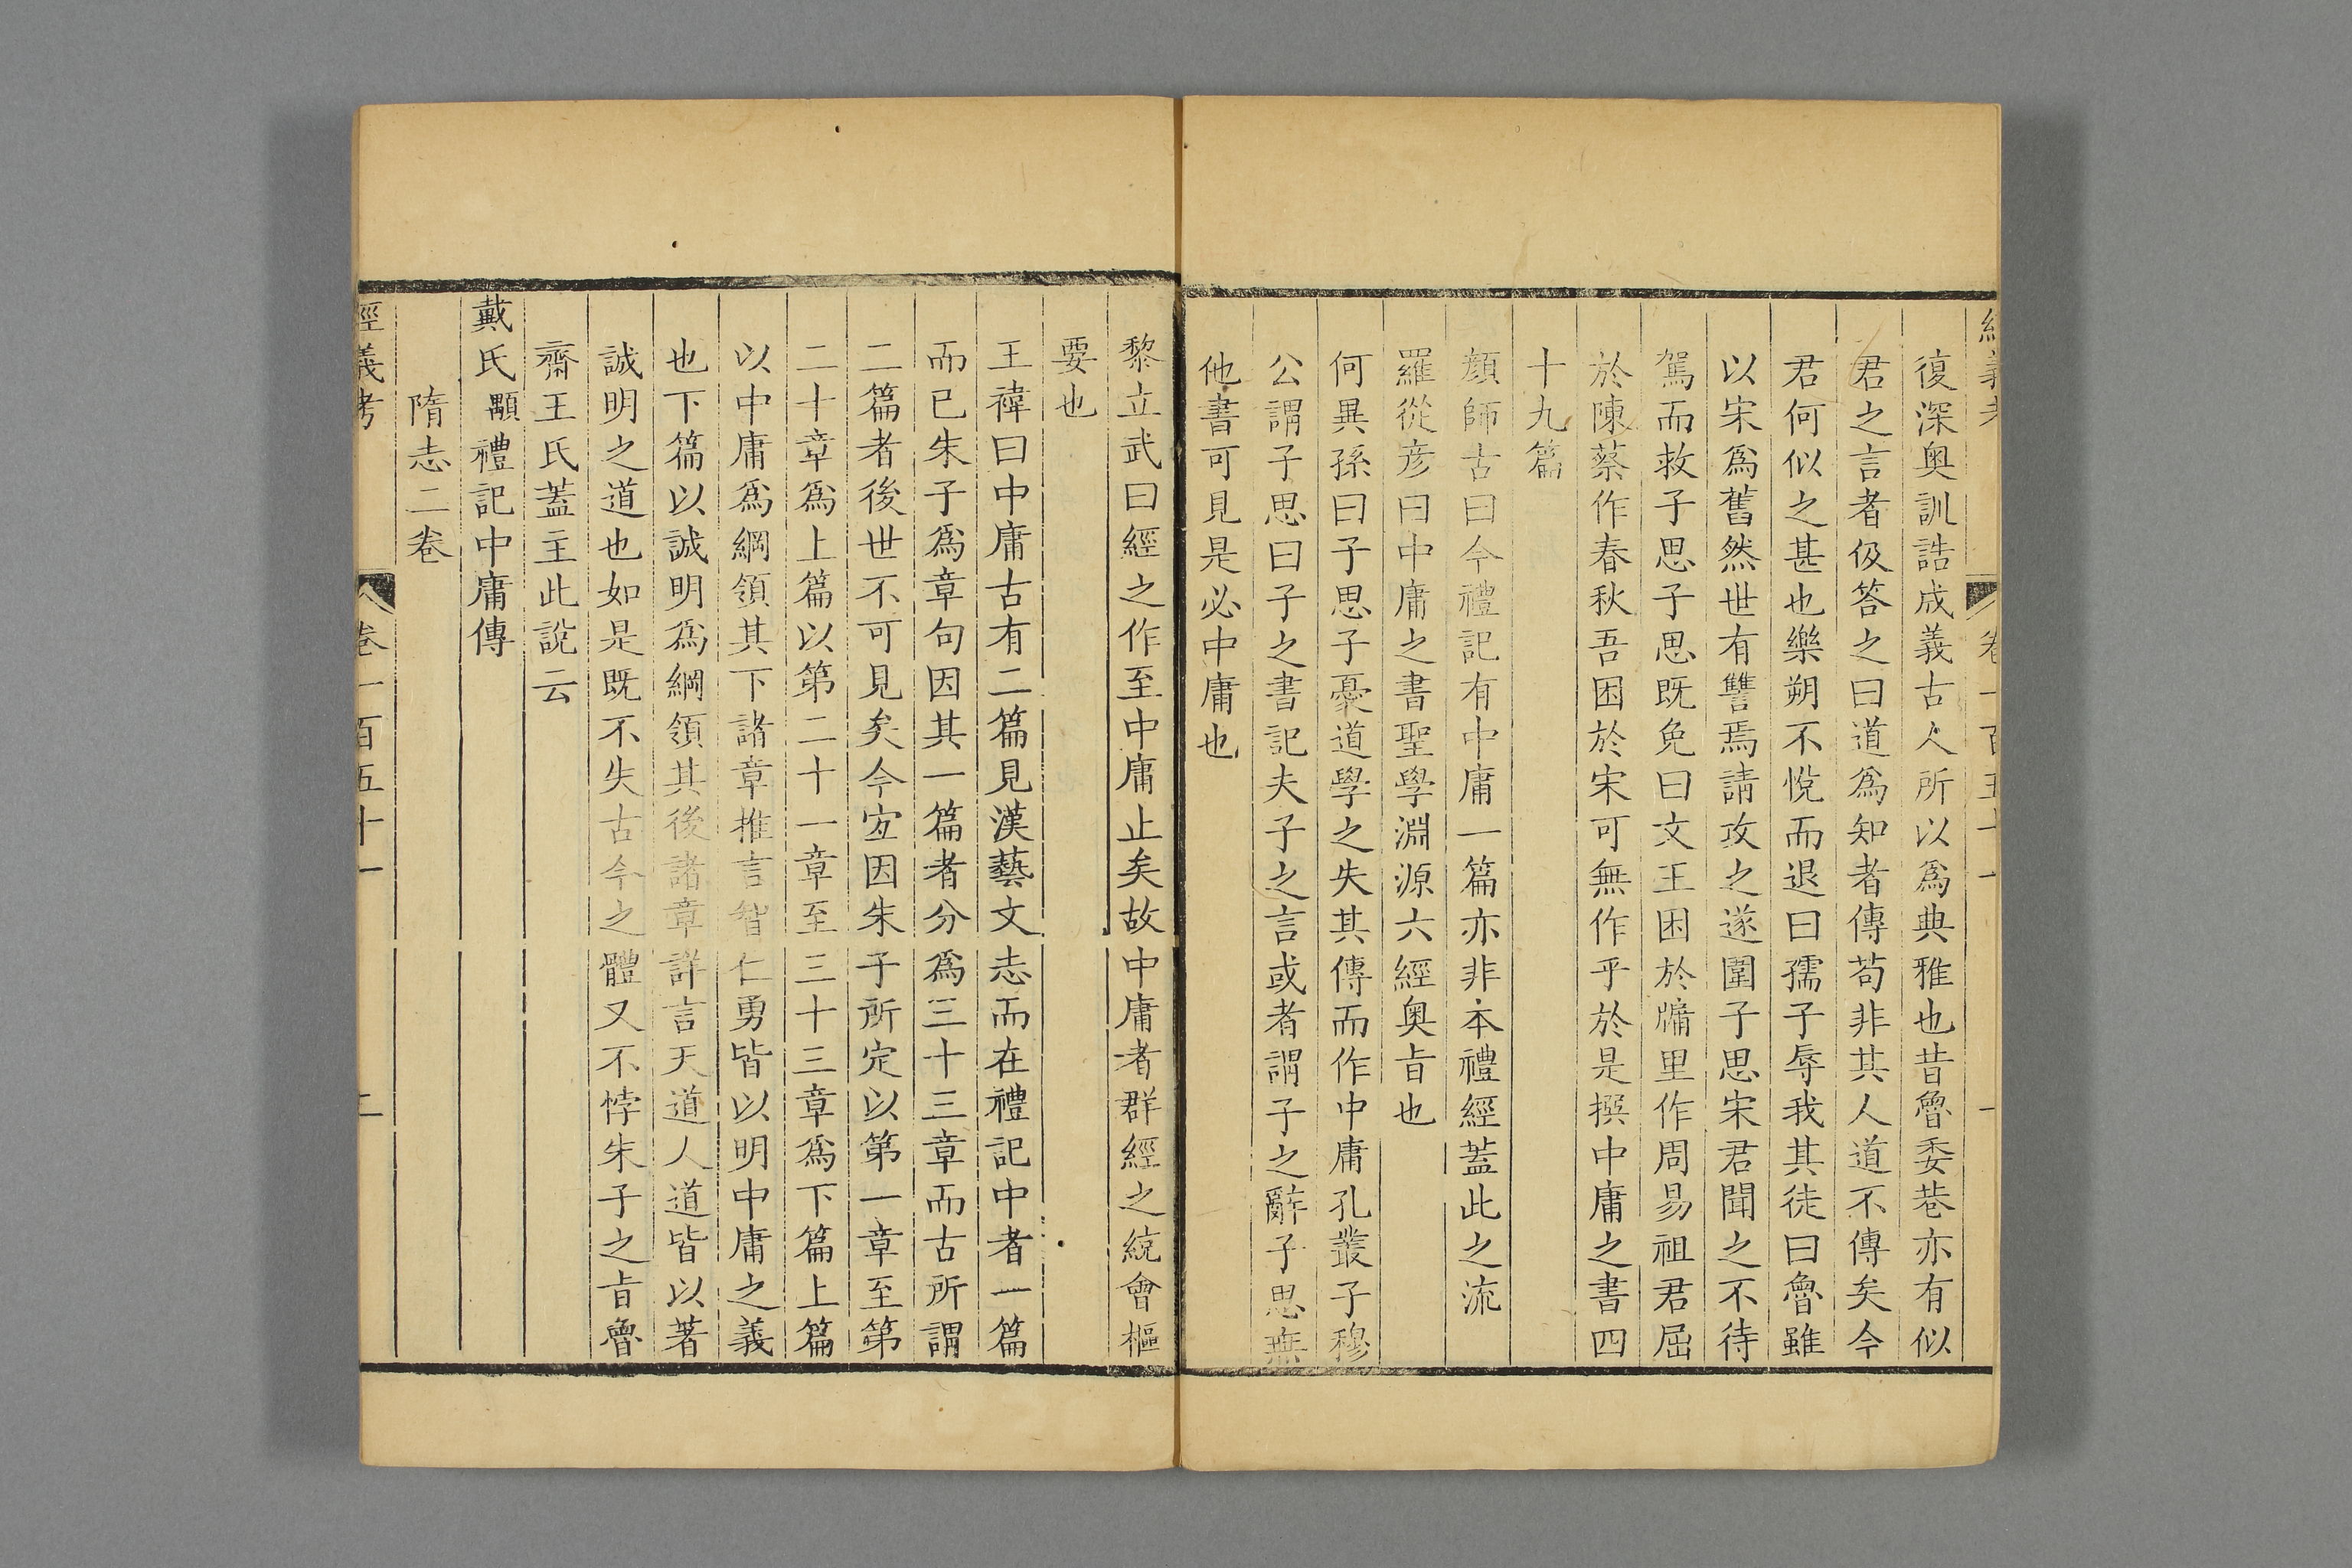 經義考 卷一百五十一 一
復深奥訓誥成義古人所以爲典雅也昔魯委巷亦有似
君之言者伋答之曰道爲知者傳苟非其人道不傳矣今
君何似之甚也樂朔不悅而退曰孺子辱我其徒曰魯雖
以宋爲舊然世有讐焉請攻之遂圍子思宋君聞之不待
駕而救子思子思既免曰文王困於牖里作周易祖君屈
於陳蔡作春秋吾困於宋可無作乎於是撰中庸之書四
十九篇
顔師古曰今禮記有中庸一篇亦非本禮經蓋此之流
羅從彥曰中庸之書聖學淵源六經奥旨也
何異孫曰子思子憂道學之失其傳而作中庸孔叢子穆
公謂子思曰子之書記夫子之言或者謂子之辭子思無
他書可見是必中庸也
黎立武曰經之作至中庸止矣故中庸者群經之統會樞
要也
王褘曰中庸古有二篇見漢藝文志而在禮記中者一篇
而已朱子爲章句因其一篇者分爲三十三章而古所謂
二篇者後世不可見矣今宜因朱子所定以第一章至第
二十章爲上篇以第二十一章至三十三章爲下篇上篇
以中庸爲綱領其下諸章推言智仁勇皆以明中庸之義
也下篇以誠明爲綱領其後諸章詳言天道人道皆以著
誠明之道也如是既不失古今之體又不悖朱子之旨魯
齋王氏蓋主此說云
戴氏顒禮記中庸傳
隋志二卷
經義考 卷一百五十一 二